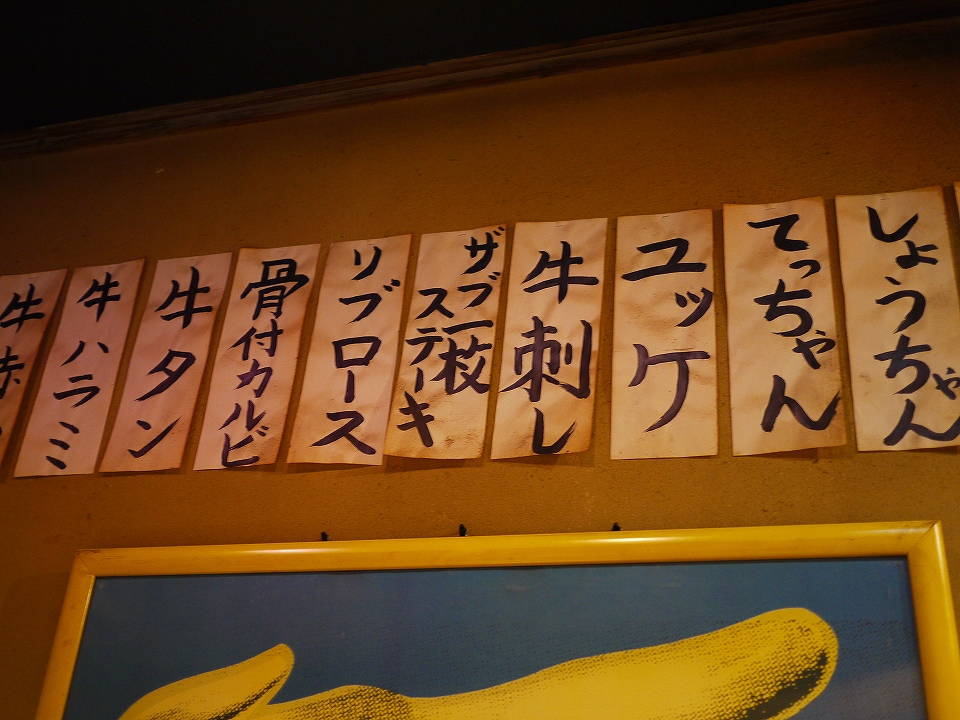 しょうちゃん
てっちゃん
ユッケ
牛刺し
ザブ一枚
ステーキ
リブロース
骨付カルビ
牛タン
牛ハラミ
牛赤